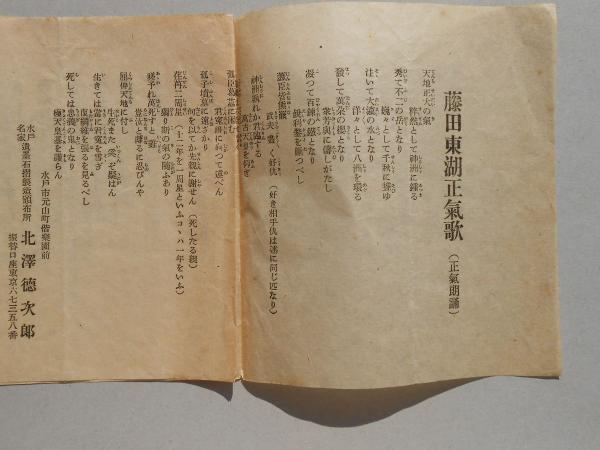 藤田東湖正氣歌（正氣朗誦）
天地正大の氣
粹然として神洲に鍾る
秀て不二の岳となり
巍々として千秋に聳ゆ
注いて大瀛の水となり
洋々として八洲を環る
發して萬朶の櫻となり
衆芳與に儔しがたし
凝つて百錬の鐵となり
鋭利鍪を斷つべし
藎臣皆熊羆
武夫盡く好仇（好き相手仇は逑に同じ匹なり）
神洲孰れか君臨する
萬古天皇を仰ぎ
孤子墳墓に遠ざかり
何を以てか先親に謝せん（死したる親）
荏苒二周星（十二年を一周星といふコヽハ一年をいふ）
獨り斯の氣の隨ふあり
嗟予れ萬死すと雖
豈汝と離るに忍びんや
屈伸天地に付し
生死また奚ぞ疑はん
生きては當に君冤を雪ぎ
復綱維を張るを見るべし
死しては忠義の鬼となり
極天皇基を護らん
水戸市元山町偕樂園前
水戸遺墨石摺製造頒布所
名家
北澤德次郎
振替口座東京六七三五八番